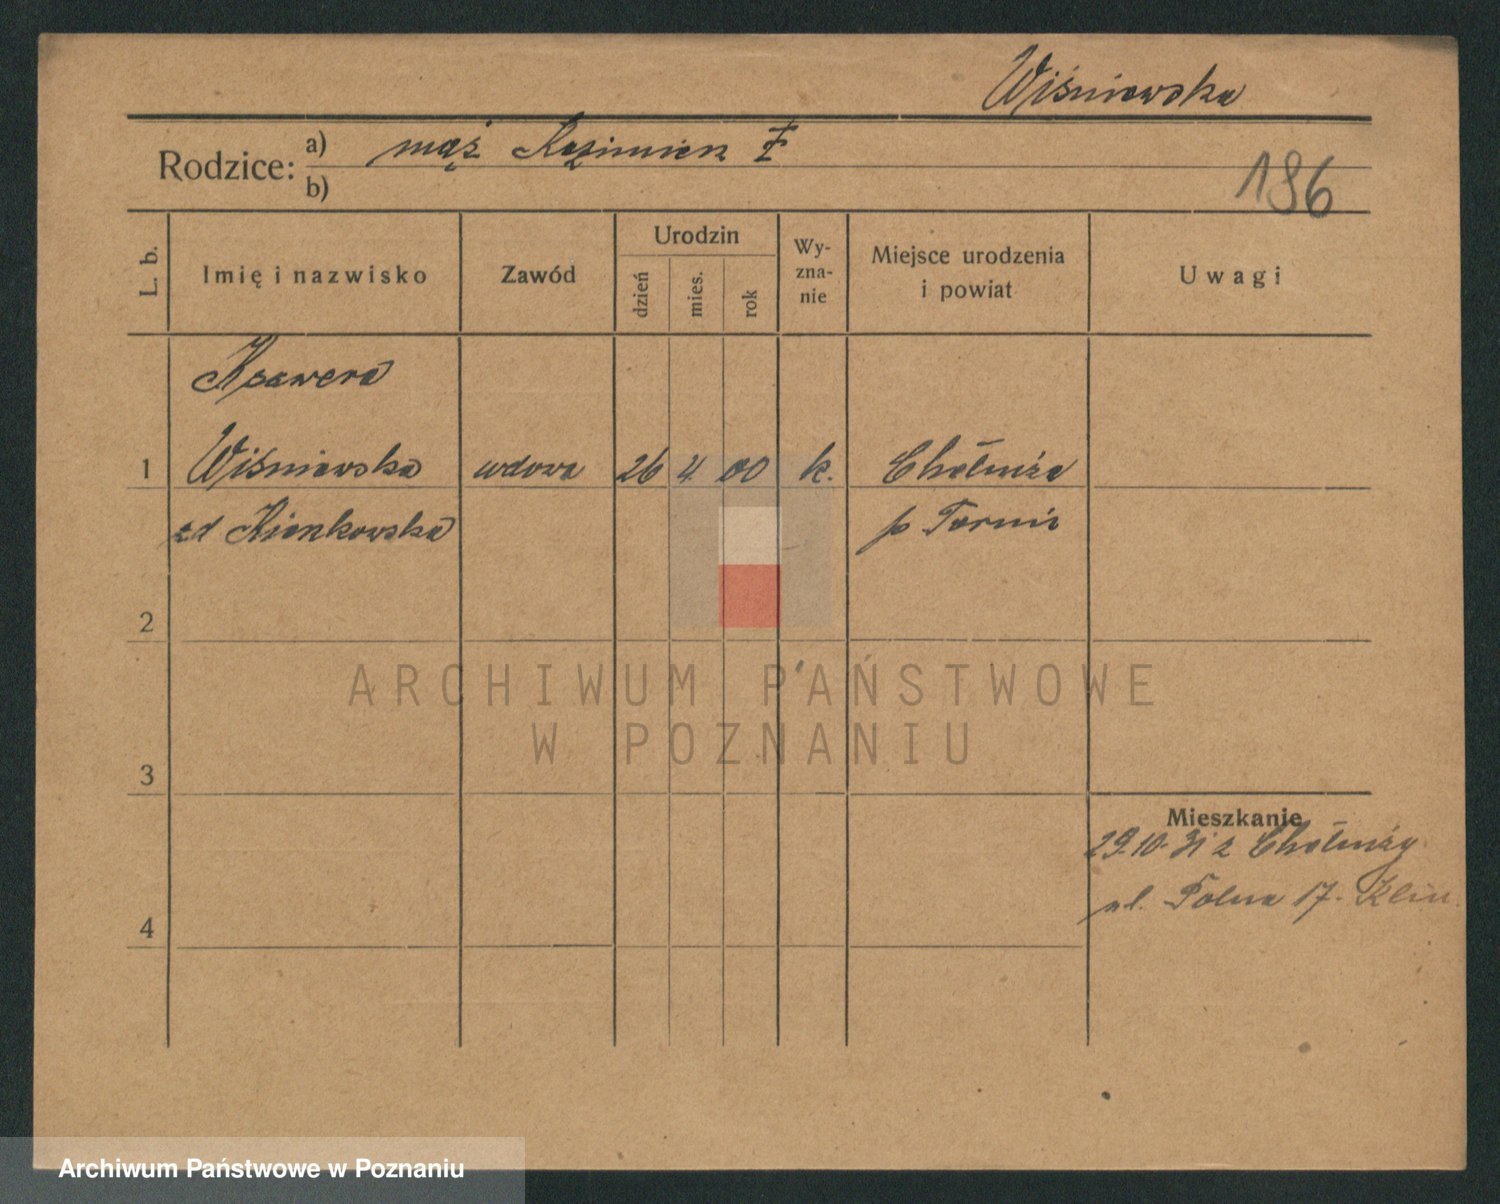 Wiśniewska
Rodzice: a) mąż Kazimierz
b)
196
L. b.
Imię i nazwisko
Zawód
Urodzin
dzień
mies.
rok
Wy-
zna-
nie
Miejsce urodzenia
i powiat
Uwagi
Ksawera
1 Wiśniewska wdowa 26 4 00 k. Chełmża
zd Kienkowska p Toruń
2
3
4
Mieszkanie
29.10.31 z Chełmży
ul. Polna 17.
ARCHIWUM PAŃSTWOWE
W POZNANIU
Archiwum Państwowe w Poznaniu